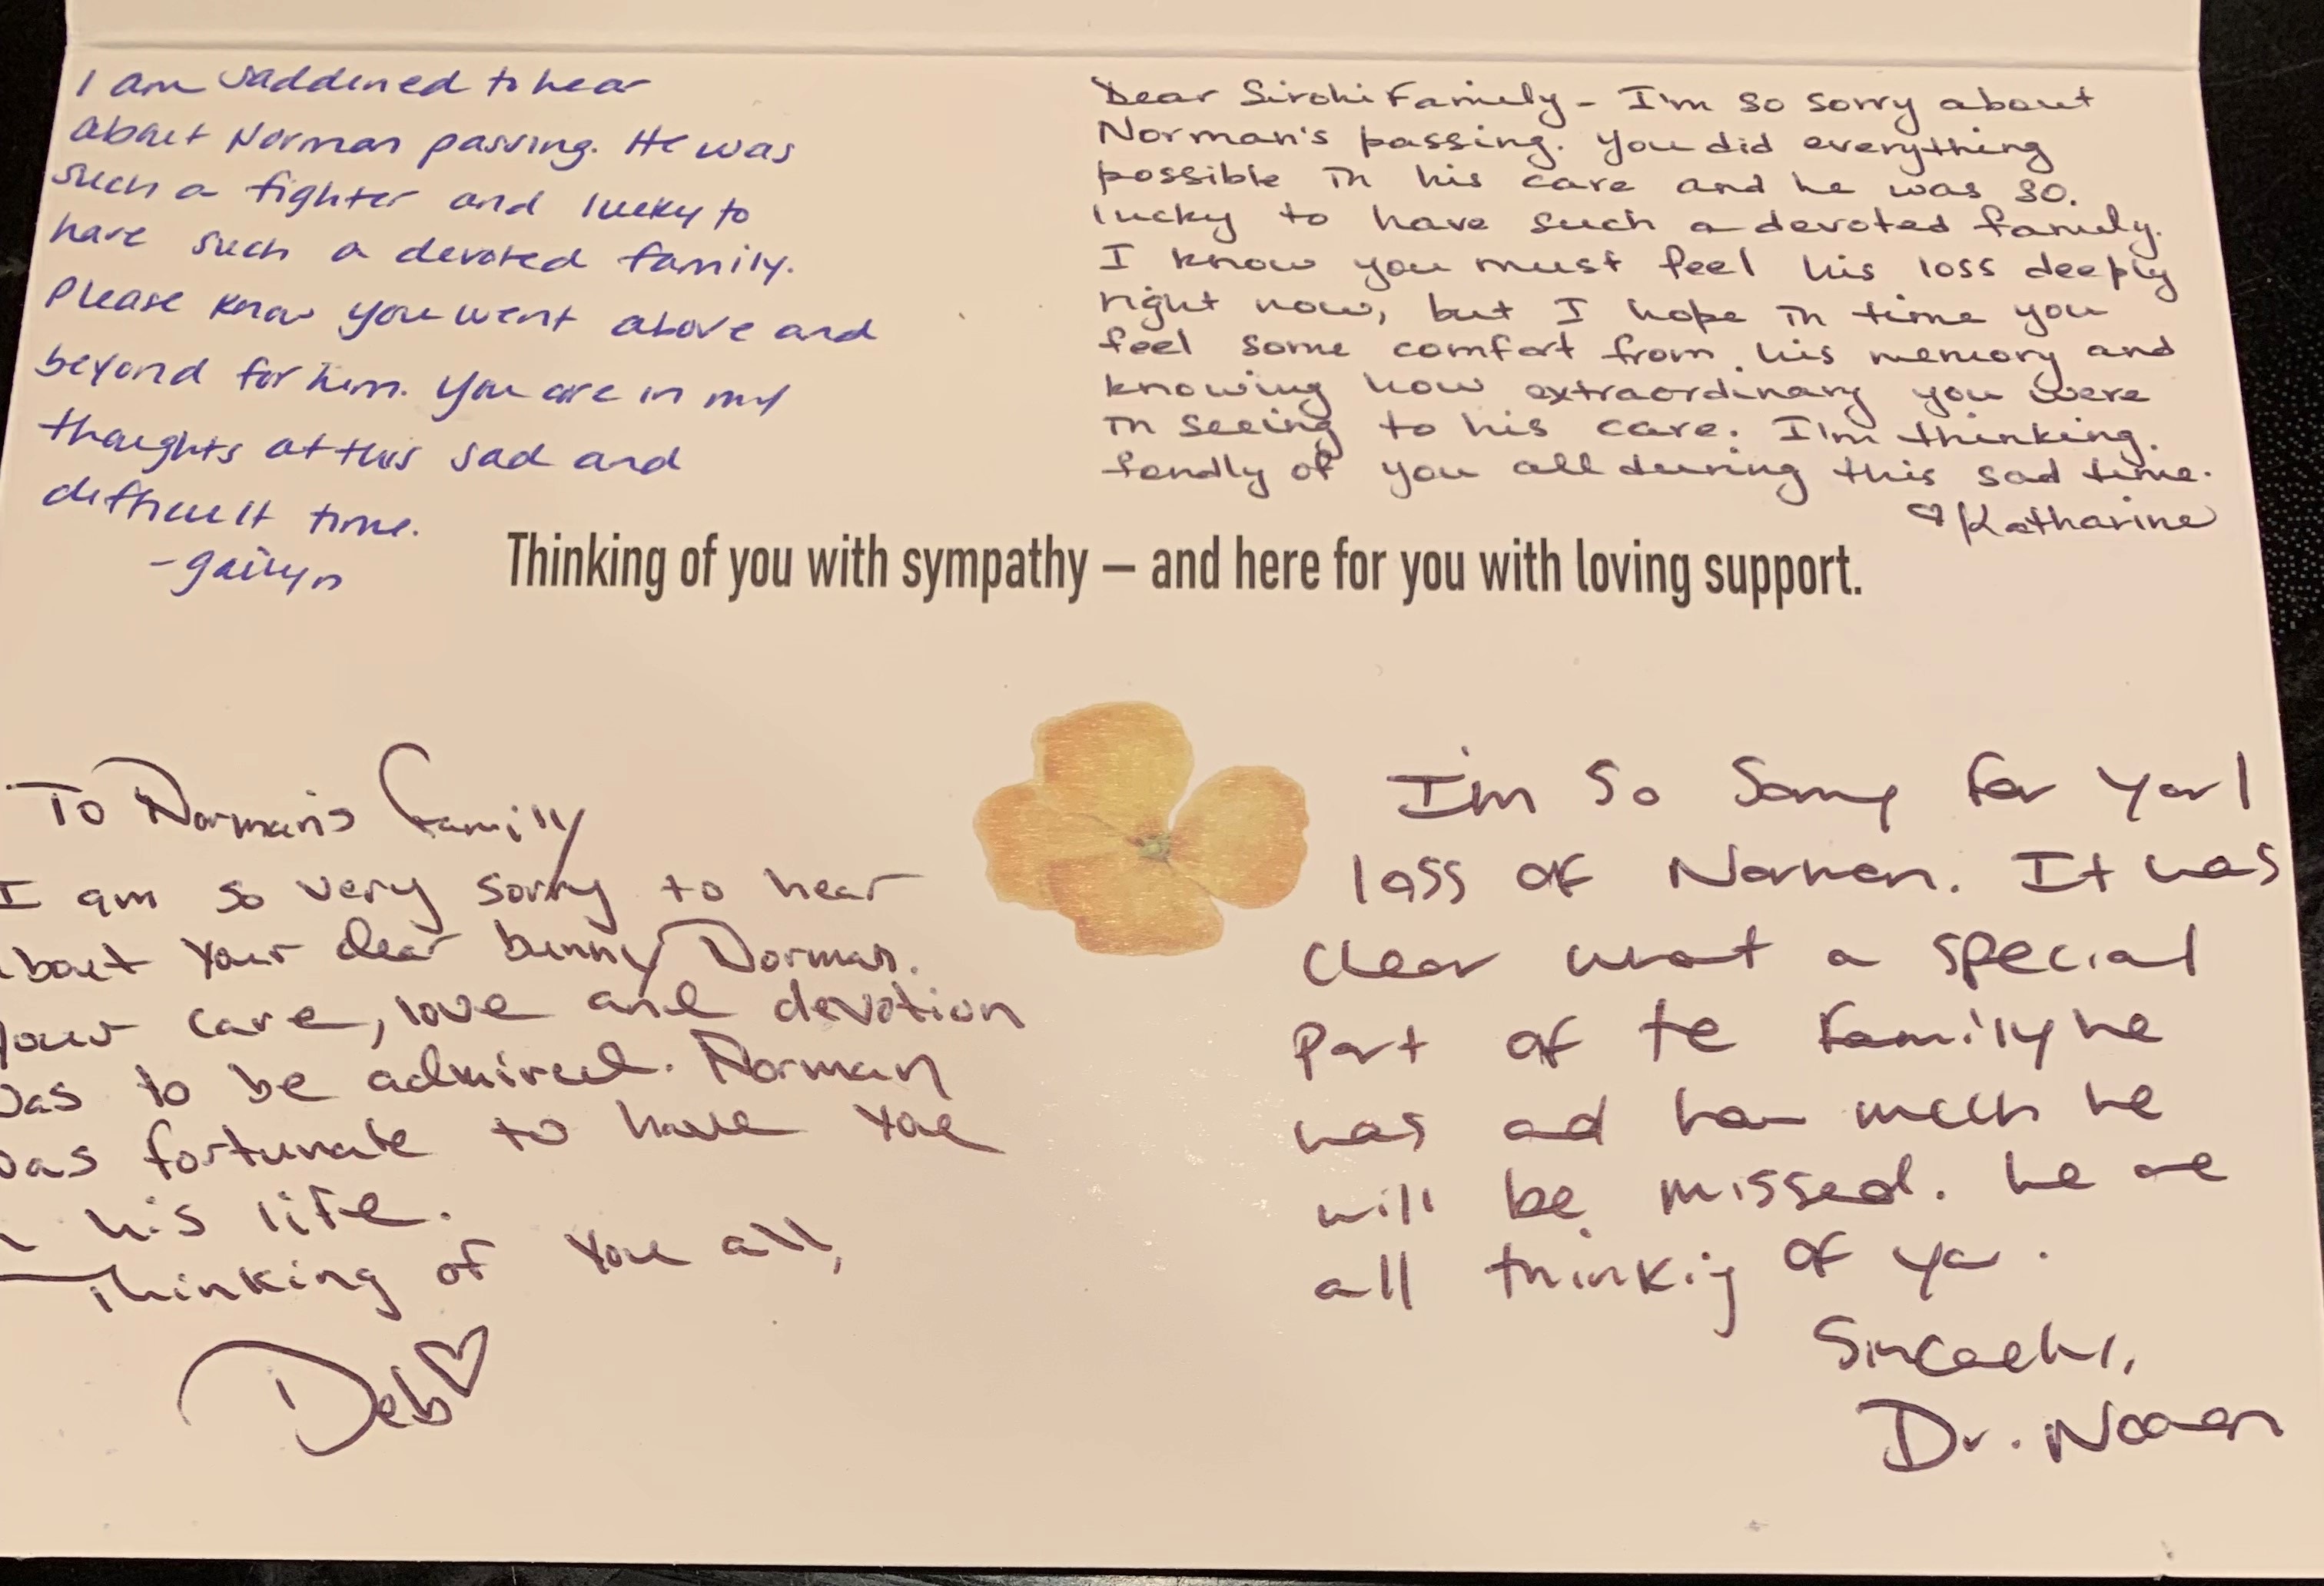 I am saddened to hear
about Norman passing. He was
such a fighter and lucky to
have such a devoted family.
Please know you went above and
beyond for him. You are in my
thoughts at this sad and
difficult time.
Dear Sirohi Family - I'm so sorry about
Norman's passing. You did everything
possible in his care and he was so
lucky to have such a devoted family.
I know you must feel his loss deeply
right now, but I hope in time you
feel some comfort from his memory and
knowing how extraordinary you were
in seeing to his care. I'm thinking
fondly of you all during this sad time.
♡ Katharine
Thinking of you with sympathy — and here for you with loving support.
To Norman's Family
I am so very sorry to hear
about your dear bunny Norman.
Your care, love and devotion
was to be admired. Norman
was fortunate to have you
his life.
Thinking of you all,
Deb ♡
I'm so sorry for your
loss of Norman. It was
clear what a special
part of te family he
was ad how much he
will be missed. We are
all thinking of you.
Sincerely,
Dr. Noonan